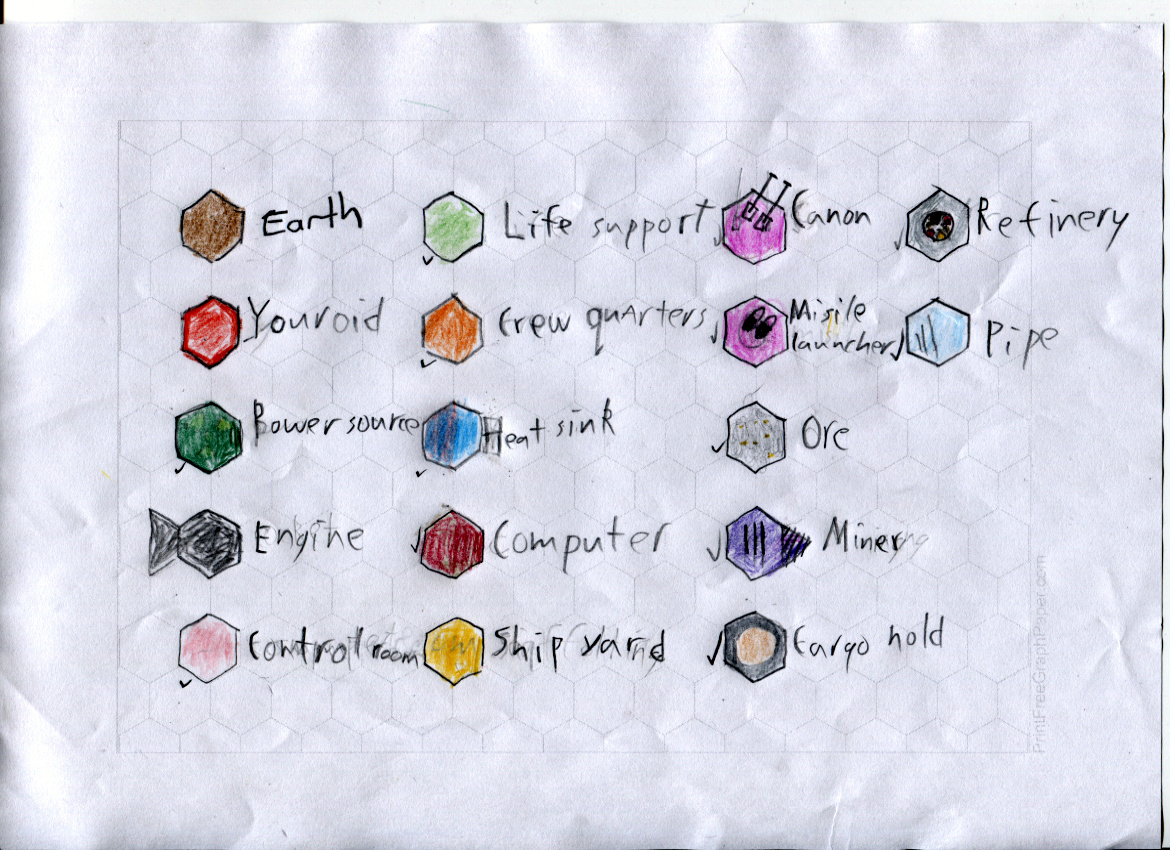 Earth
Life support
Canon
Refinery
Youroid
Crew quarters
Misile
launcher
Pipe
Power source
Heat sink
Ore
Engine
Computer
Miner
Control room
Ship yard
Cargo hold
PrintFreeGraphPaper.com